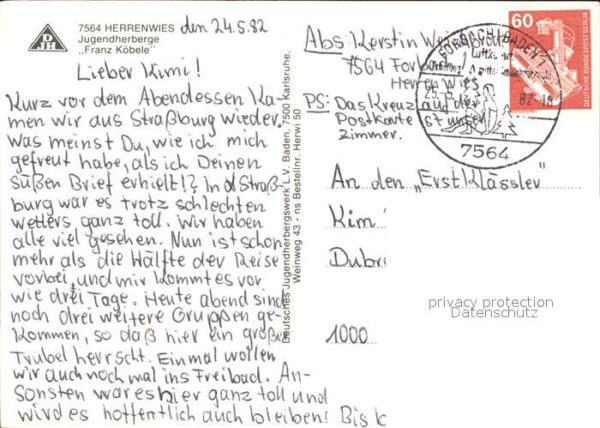 7564 HERRENWIES
Jugendherberge
„Franz Köbele"
DJH
den 24.5.82
Lieber Kimi!
Kurz vor dem Abendessen ka-
men wir aus Straßburg wieder.
Was meinst Du, wie ich mich
gefreut habe, als ich Deinen
süßen Brief erhielt!? In Straß-
burg war es trotz schlechten
wetters ganz toll. Wir haben
alle viel gesehen. Nun ist schon
mehr als die Hälfte der Reise
vorbei, und mir kommt es vor
wie drei Tage. Heute abend sind
noch drei weitere Gruppen ge-
kommen, so daß hier ein großer
Trubel herrscht. Einmal wollen
wir auch noch mal ins Freibad. An-
sonsten war es hier ganz toll und
wird es hoffentlich auch bleiben! Bis
Deutsches Jugendherbergswerk L.V. Baden, 7500 Karlsruhe,
Weinweg 43 - ns Bestellnr. Herwi 50
Abs: Kerstin
7564
PS: Das Kreuz auf der
Postkarte ist unser
Zimmer.
FORBACH, BADEN 1
Luftkurort
82-18
7564
60
DEUTSCHE BUNDESPOST BERLIN
An den „Erstklässler"
Kim
1000
privacy protection
Datenschutz